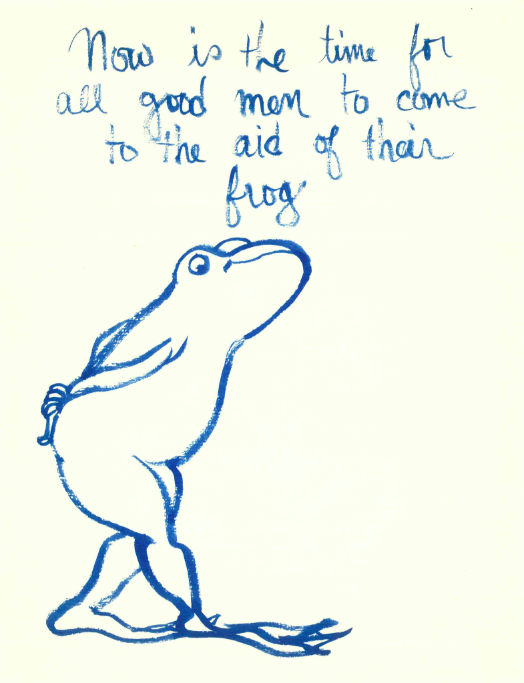 Now is the time for
all good men to come
to the aid of their
frog